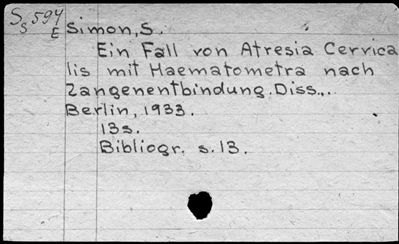 S 594
S
E
Simon, S.
Ein Fall von Atresia Cervica
lis mit Haematometra nach
Zangenentbindung. Diss.,.
Berlin, 1933.
13s.
Bibliogr. s. 13.